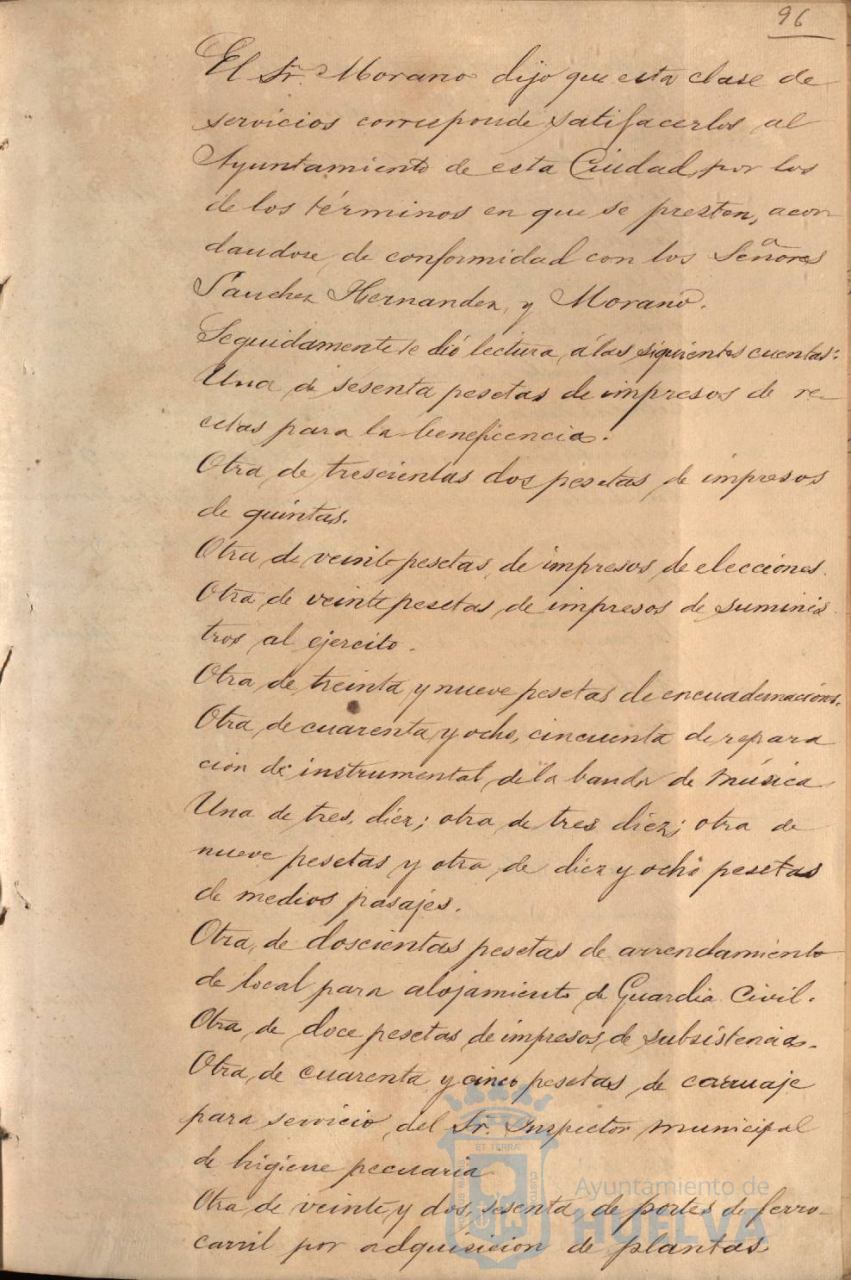 96
El Sr. Morano dijo que esta clase de
servicios corresponde satifacerlos al
Ayuntamiento de esta Ciudad, por los
de los términos en que se presten, acor
dandose de conformidad con los Señores
Sanchez Hernandez, y Morano.
Seguidamente se dió lectura, á las siguientes cuentas:
Una de sesenta pesetas de impresos de re-
cetas para la beneficencia.
Otra de trescientas dos pesetas de impresos
de quintas.
Otra de veinte pesetas, de impresos de elecciones.
Otra de veinte pesetas de impresos de suminis
tros al ejercito.
Otra de treinta y nueve pesetas de encuadernacións.
Otra de cuarenta y ocho, cincuenta de repara
cion de instrumental, de la banda de música
Una de tres, diez; otra de tres diez; otra de
nueve pesetas y otra de diez y ocho pesetas
de medios pasajes.
Otra de doscientas pesetas de arrendamiento
de local para alojamiento de Guardia Civil.
Otra de doce pesetas de impresos de subsistencias.
Otra de cuarenta y cinco pesetas de carruaje
para servicio del Sr. Inspector municipal
de higiene pecuaria
Otra de veinte y dos, sesenta de portes de ferro-
carril por adquisicion de plantas
ET TERRÆ
CUSTODIA
Ayuntamiento de
HUELVA